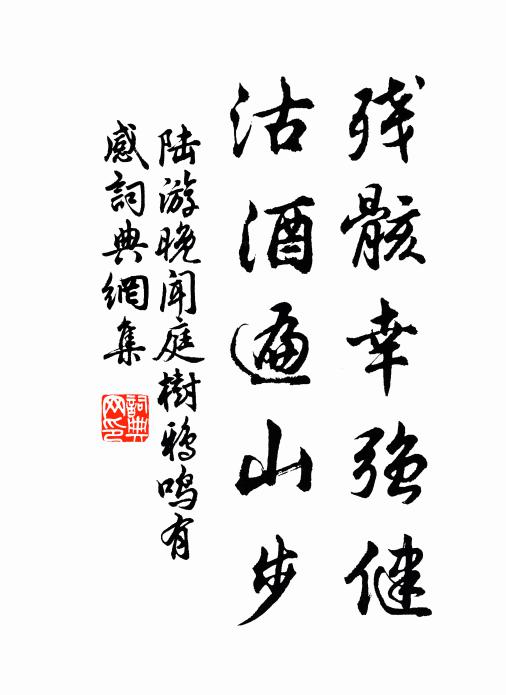 残骸幸强健
沽酒遍山步
陆游晚闻庭樹鸦鸣有
感詞典網集
詞典
网印